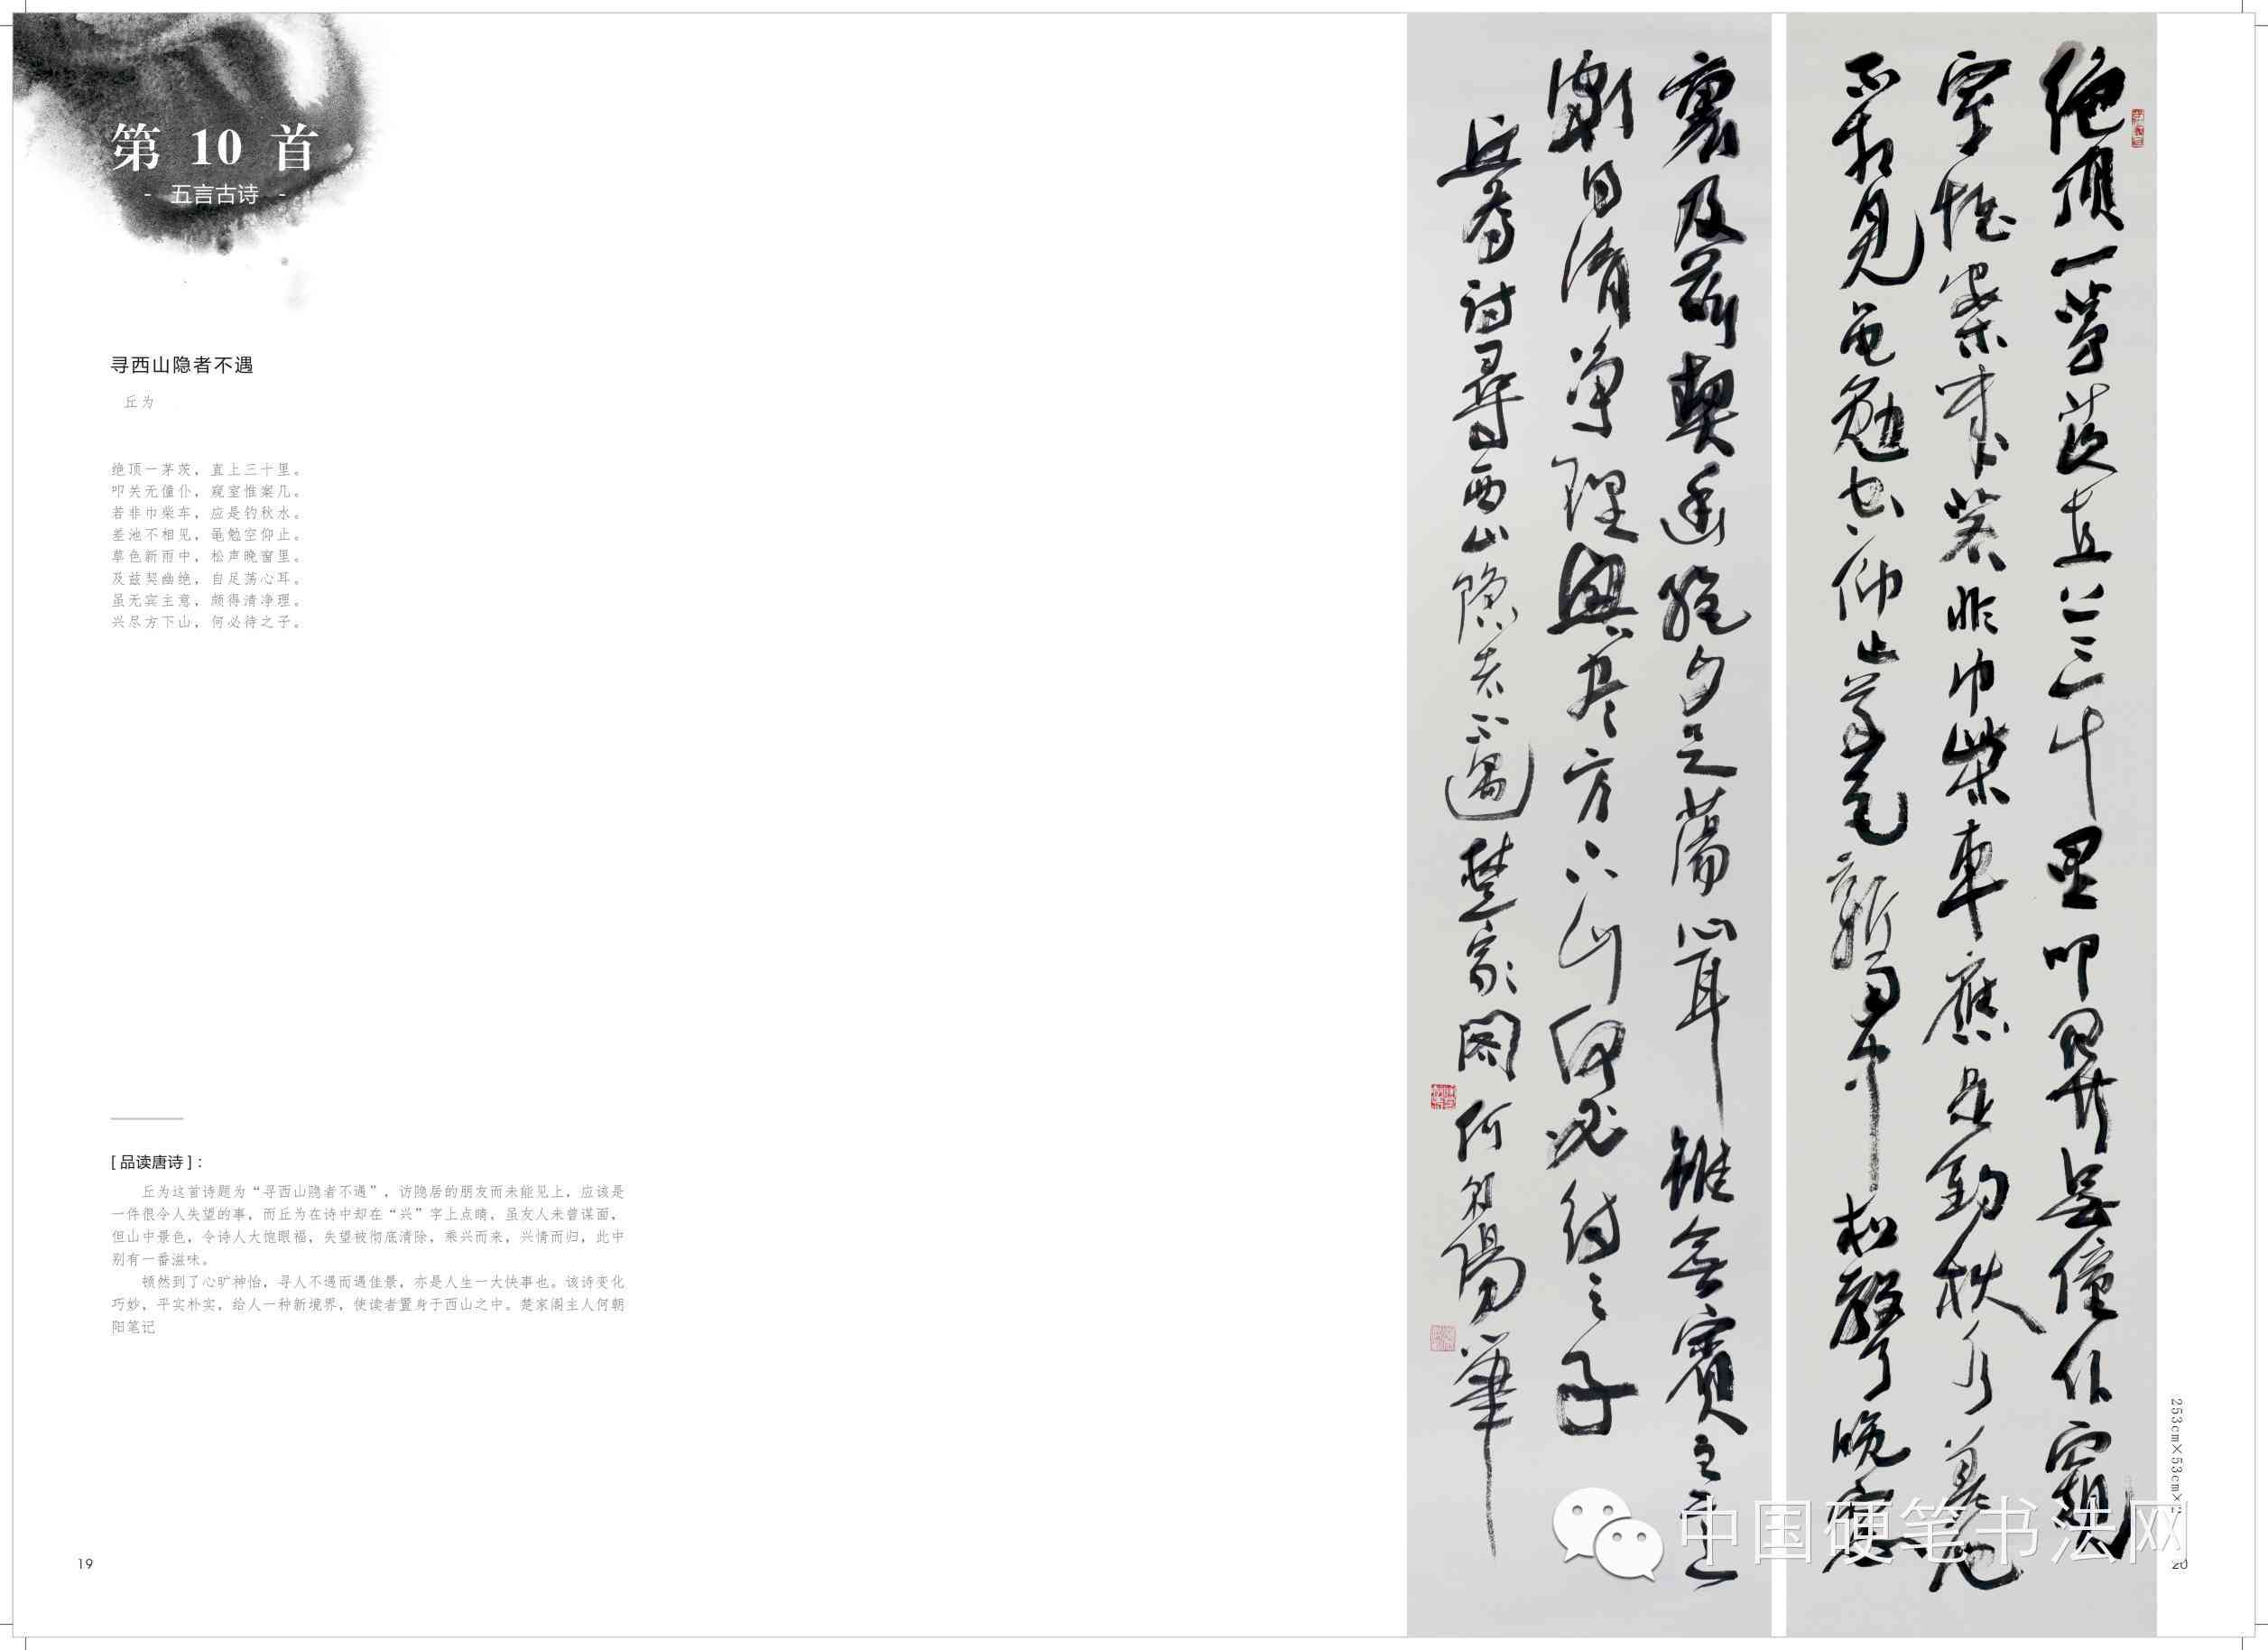 第 10 首
- 五言古诗 -
寻西山隐者不遇
丘为
绝顶一茅茨，直上三十里。
叩关无僮仆，窥室惟案几。
若非巾柴车，应是钓秋水。
差池不相见，黾勉空仰止。
草色新雨中，松声晚窗里。
及兹契幽绝，自足荡心耳。
虽无宾主意，颇得清净理。
兴尽方下山，何必待之子。
[ 品读唐诗 ]：
丘为这首诗题为“寻西山隐者不遇”，访隐居的朋友而未能见上，应该是
一件很令人失望的事，而丘为在诗中却在“兴”字上点睛，虽友人未曾谋面，
但山中景色，令诗人大饱眼福，失望被彻底清除，乘兴而来，兴情而归，此中
别有一番滋味。
顿然到了心旷神怡，寻人不遇而遇佳景，亦是人生一大快事也。该诗变化
巧妙，平实朴实，给人一种新境界，使读者置身于西山之中。楚家阁主人何朝
阳笔记
19
絶頂一茅茨直上三十里叩關無僮仆窺
室惟案几若非巾柴車應是釣秋水差池
不相見黽勉空仰止草色新雨中松聲晚窗
裏及茲契幽絶自足蕩心耳雖無賓主意
頗得清淨理興尽方下山何必待之子
丘為詩尋西山隐者不遇楚家阁何朝陽筆
253cm×53cm×2
中国硬笔书法网
20